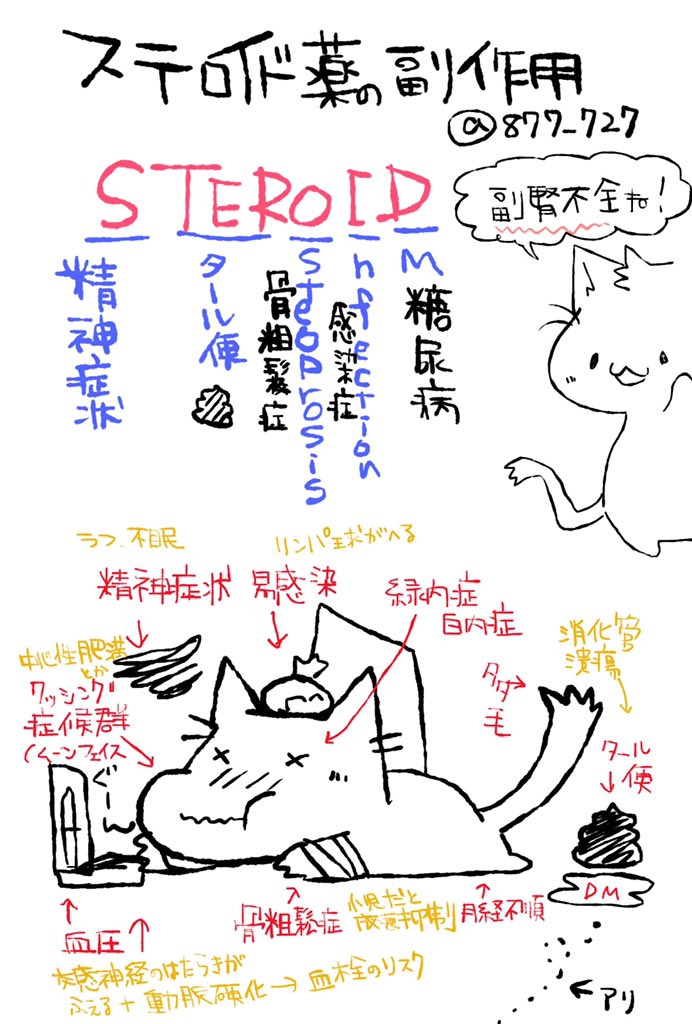 ステロイド薬の副作用
@877_727
STEROID
副腎不全も!
精神症状
タール便
Steoprosis
骨粗鬆症
nfection
感染症
M
糖尿病
うつ、不眠
リンパ球がへる
精神症状
易感染
緑内症
白内症
消化管
潰瘍
中心性肥満
とか
クッシング
症候群
(ムーンフェイス
タダ
毛
タール
便
ぐーん
DM
血圧↑
骨粗鬆症
小児だと
成長抑制
月経不順
交感神経のはたらきが
ふえる+動脈硬化→血栓のリスク
アリ